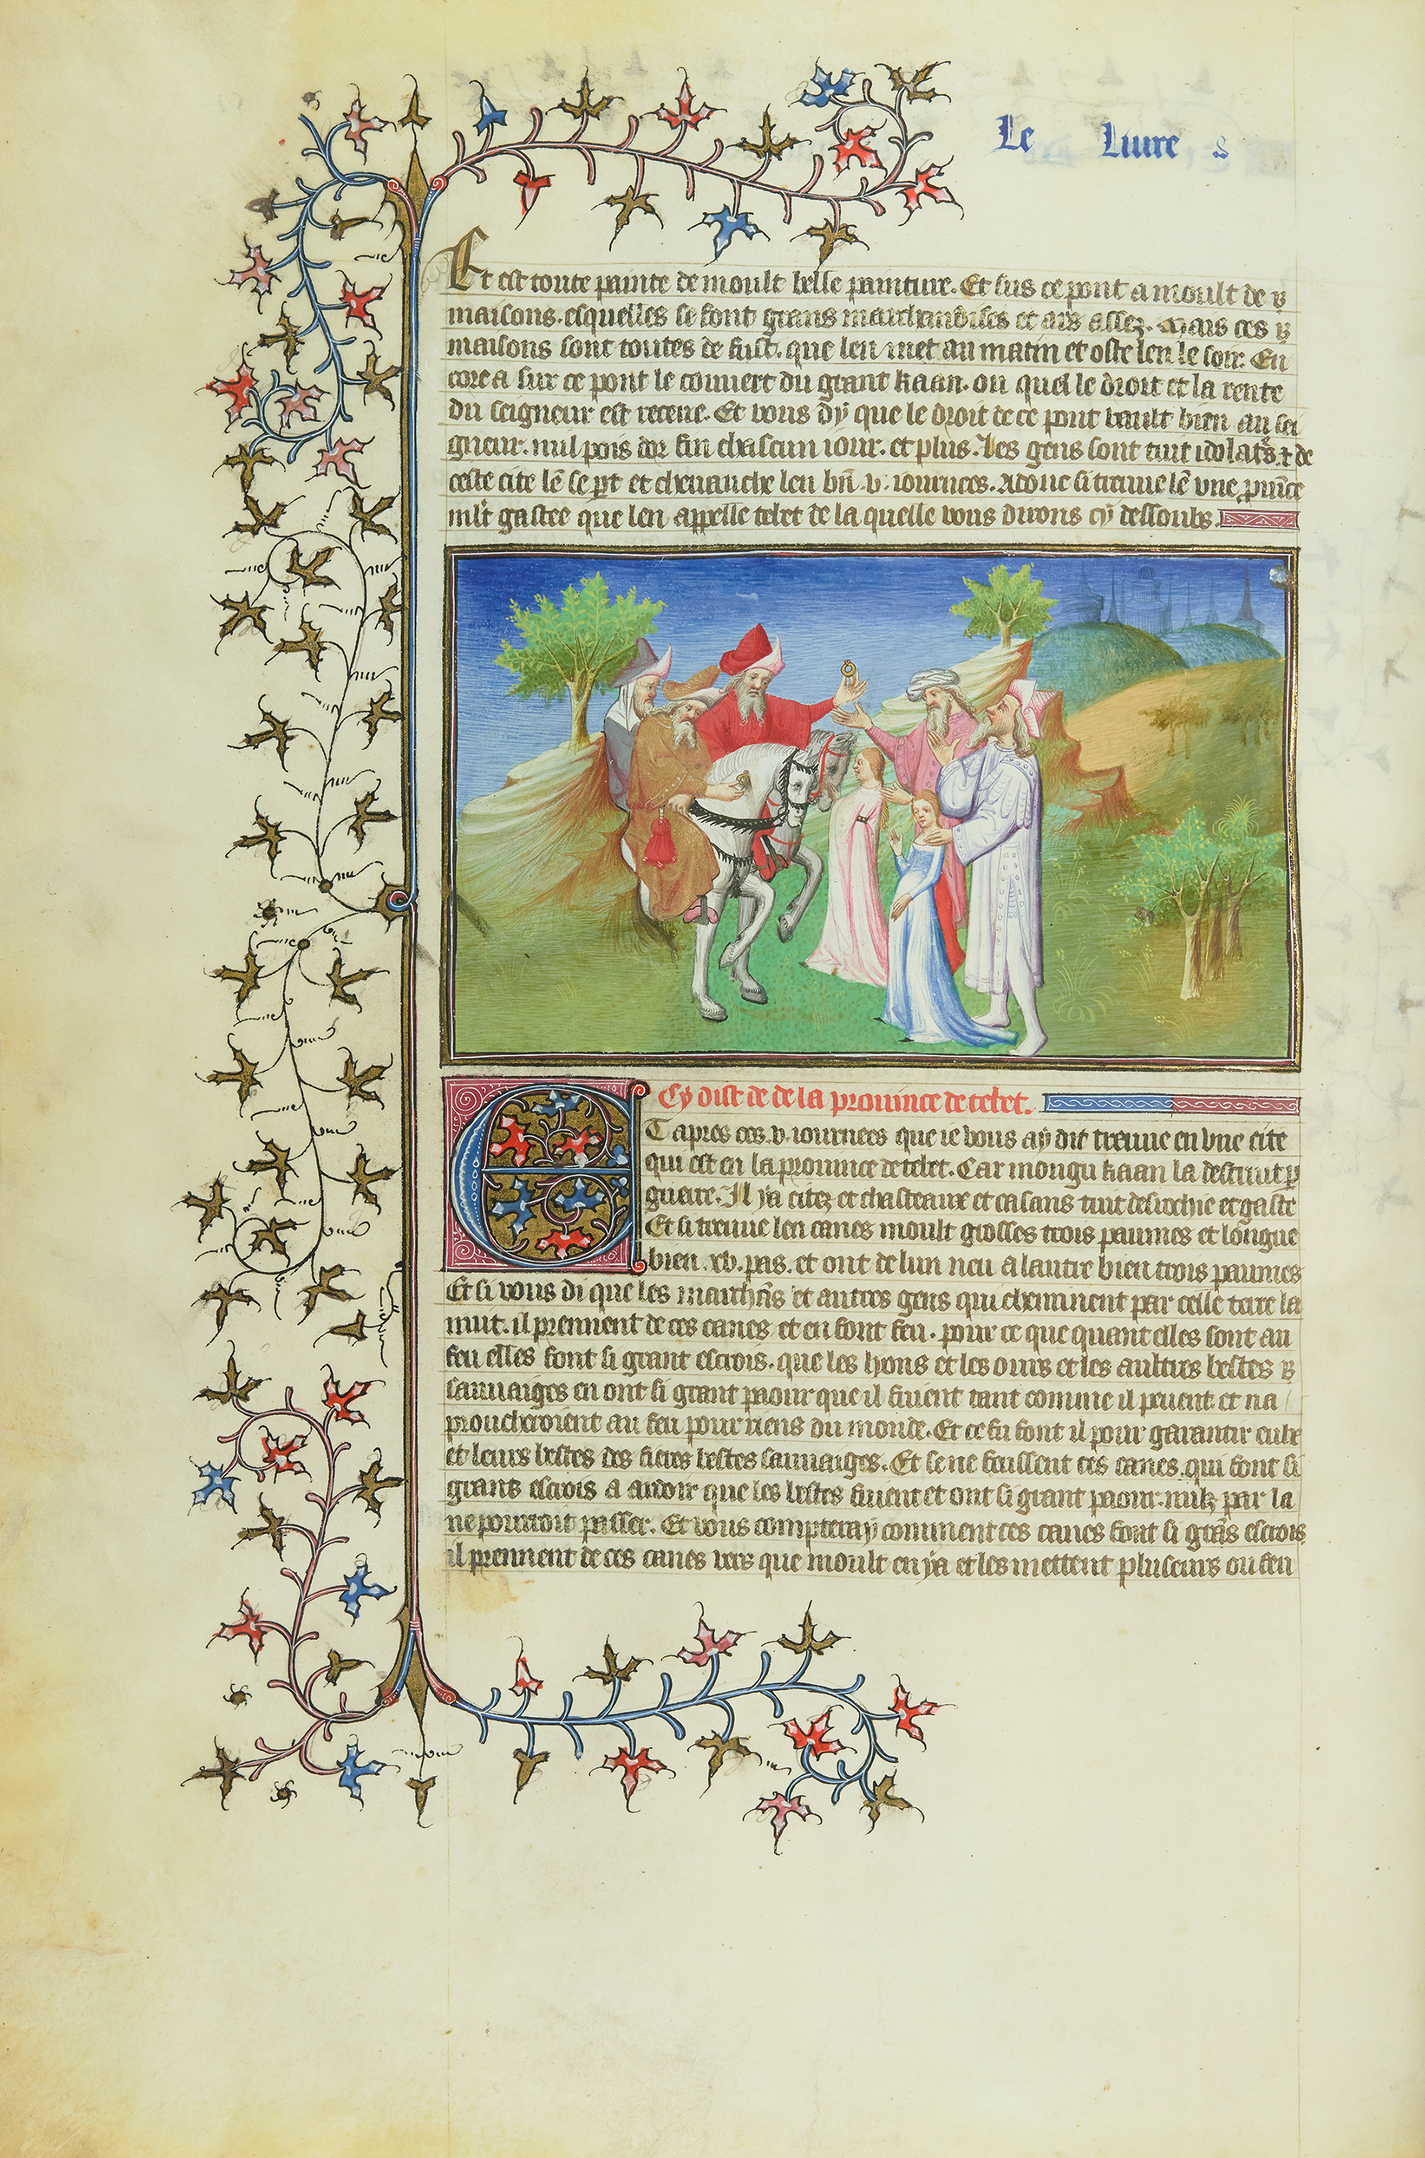 Le Liure
Et est toute painte de moult belle painture. Et sus ce pont a moult de
maisons. esquelles se font grans marchandises et ars assez. Mais ces
maisons sont toutes de fust. que len met au matin et oste len le soir. En
core a sur ce pont le couuert du grant kaan. ou quel le droit et la rente
du seigneur est receue. Et vous dy que le droit de ce pont vault bien au sei
gneur. mil pois dor fin chascun iour. et plus. Les gens sont tuit idolats. et de
ceste cite lẽ se pt et cheuauche len bñ .v. iournees. Adonc si treuue lẽ vne prouĩce
mlt gastee que len appelle tebet de la quelle vous dirons cy dessoubz.
Cy dist de de la prouince de tebet.
Et apres ces .v. iournees que ie vous ay dit treuue en vne cite
qui est en la prouince de tebet. Car mongu kaan la destruit p
guerre. Il ya citez et chasteaux et casaus tuit desrochie et gaste
Et si treuue len canes moult grosses trois paumes et longue
bien .xv. pas. et ont de lun neu a lautre bien trois paumes
Et si vous di que les marchãs et autres gens qui cheminent par celle terre la
nuit. il prennent de ces canes et en font feu. pour ce que quant elles sont au
feu elles font si grant escrois. que les lyons et les ours et les aultres bestes
sauuaiges en ont si grant paour que il fuient tant comme il peuent. et na
proucheroient au feu pour riens du monde. Et ce fu font il pour garantir eulx
et leurs bestes des fieres bestes sauuaiges. Et se ne feussent ces canes. qui font si
grans escrois a ardoir que les bestes fuient et ont si grant paour. nulz par la
ne pourroit passer. Et vous compteray comment ces canes font si grãs escrois.
il prennent de ces canes vers que moult en ya et les mettent pluseurs ou feu